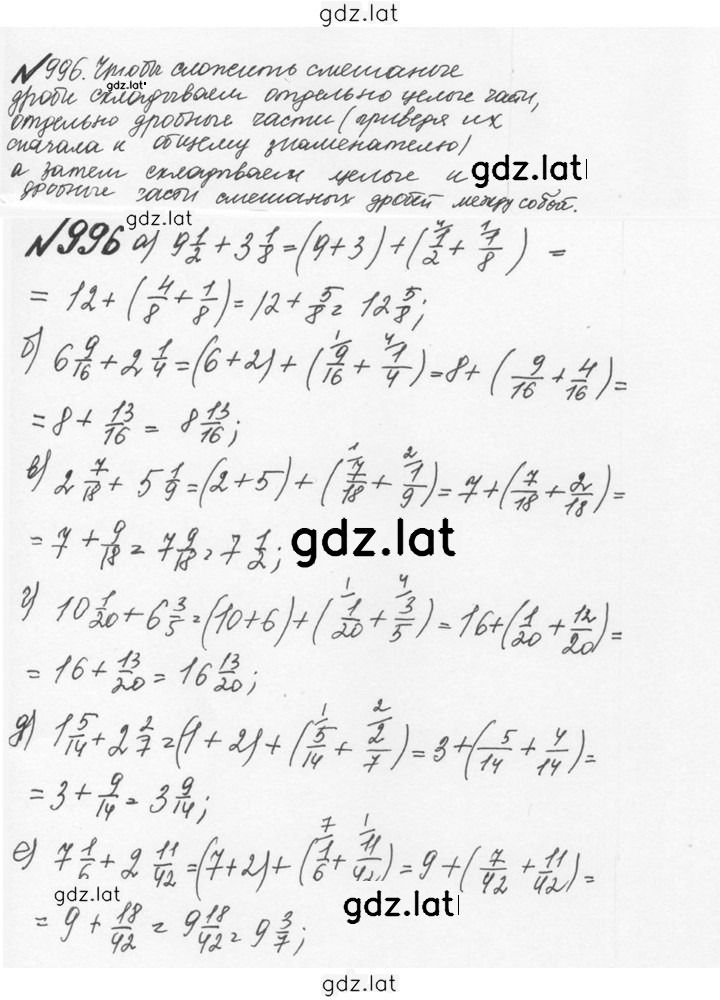 gdz.lat
№996. Чтобы сложить смешаные
gdz.lat
дроби складываем отдельно целые части,
отдельно дробные части (приведя их
сначала к общему знаменателю)
а затем складываем целые и
gdz.lat
дробные части смешаных дробей между собой.
gdz.lat
№996 а) 9 1/2 + 3 1/8 = (9 + 3) + (1/2 + 1/8) =
= 12 + (4/8 + 1/8) = 12 + 5/8 = 12 5/8;
б) 6 9/16 + 2 1/4 = (6 + 2) + (9/16 + 1/4) = 8 + (9/16 + 4/16) =
= 8 + 13/16 = 8 13/16;
в) 2 7/18 + 5 1/9 = (2 + 5) + (7/18 + 1/9) = 7 + (7/18 + 2/18) =
gdz.lat
= 7 + 9/18 = 7 9/18 = 7 1/2;
г) 10 1/20 + 6 3/5 = (10 + 6) + (1/20 + 3/5) = 16 + (1/20 + 12/20) =
= 16 + 13/20 = 16 13/20;
д) 1 5/14 + 2 2/7 = (1 + 2) + (5/14 + 2/7) = 3 + (5/14 + 4/14) =
= 3 + 9/14 = 3 9/14;
е) 7 1/6 + 2 11/42 = (7 + 2) + (1/6 + 11/42) = 9 + (7/42 + 11/42) =
gdz.lat
gdz.lat
= 9 + 18/42 = 9 18/42 = 9 3/7;
gdz.lat